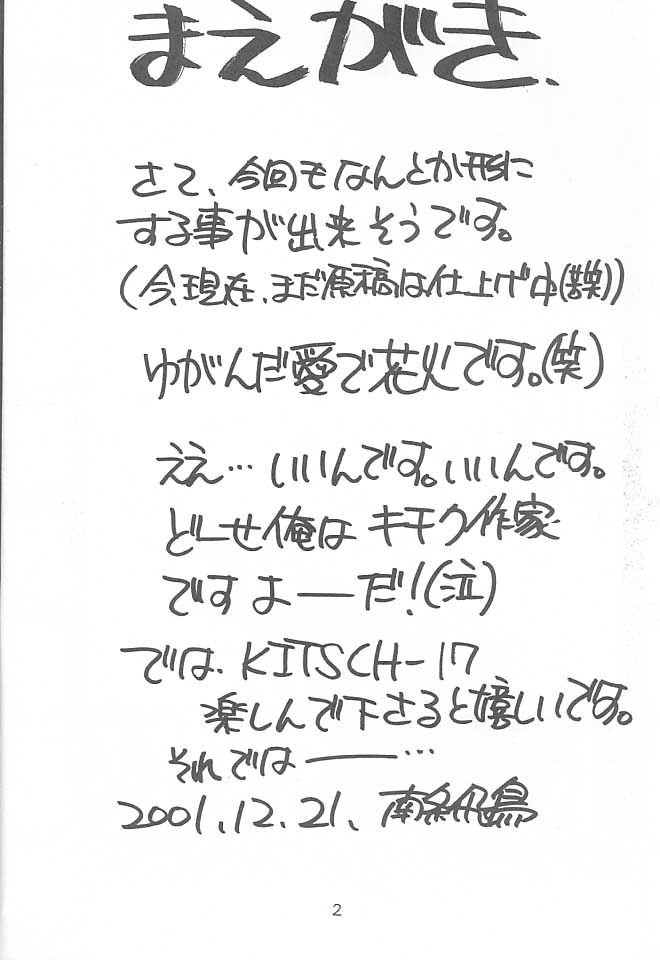 まえがき.
さて、今回もなんとか形に
する事が出来そうです。
(今、現在、まだ原稿は仕上げ中(苦笑))
ゆがんだ愛で花火です。(笑)
ええ…いいんです。いいんです。
どーせ俺は キモク作家
ですよ――だ!(泣)
では、KITSCH-17
楽しんで下さると嬉しいです。
それでは――…
2001.12.21、南条飛鳥
2